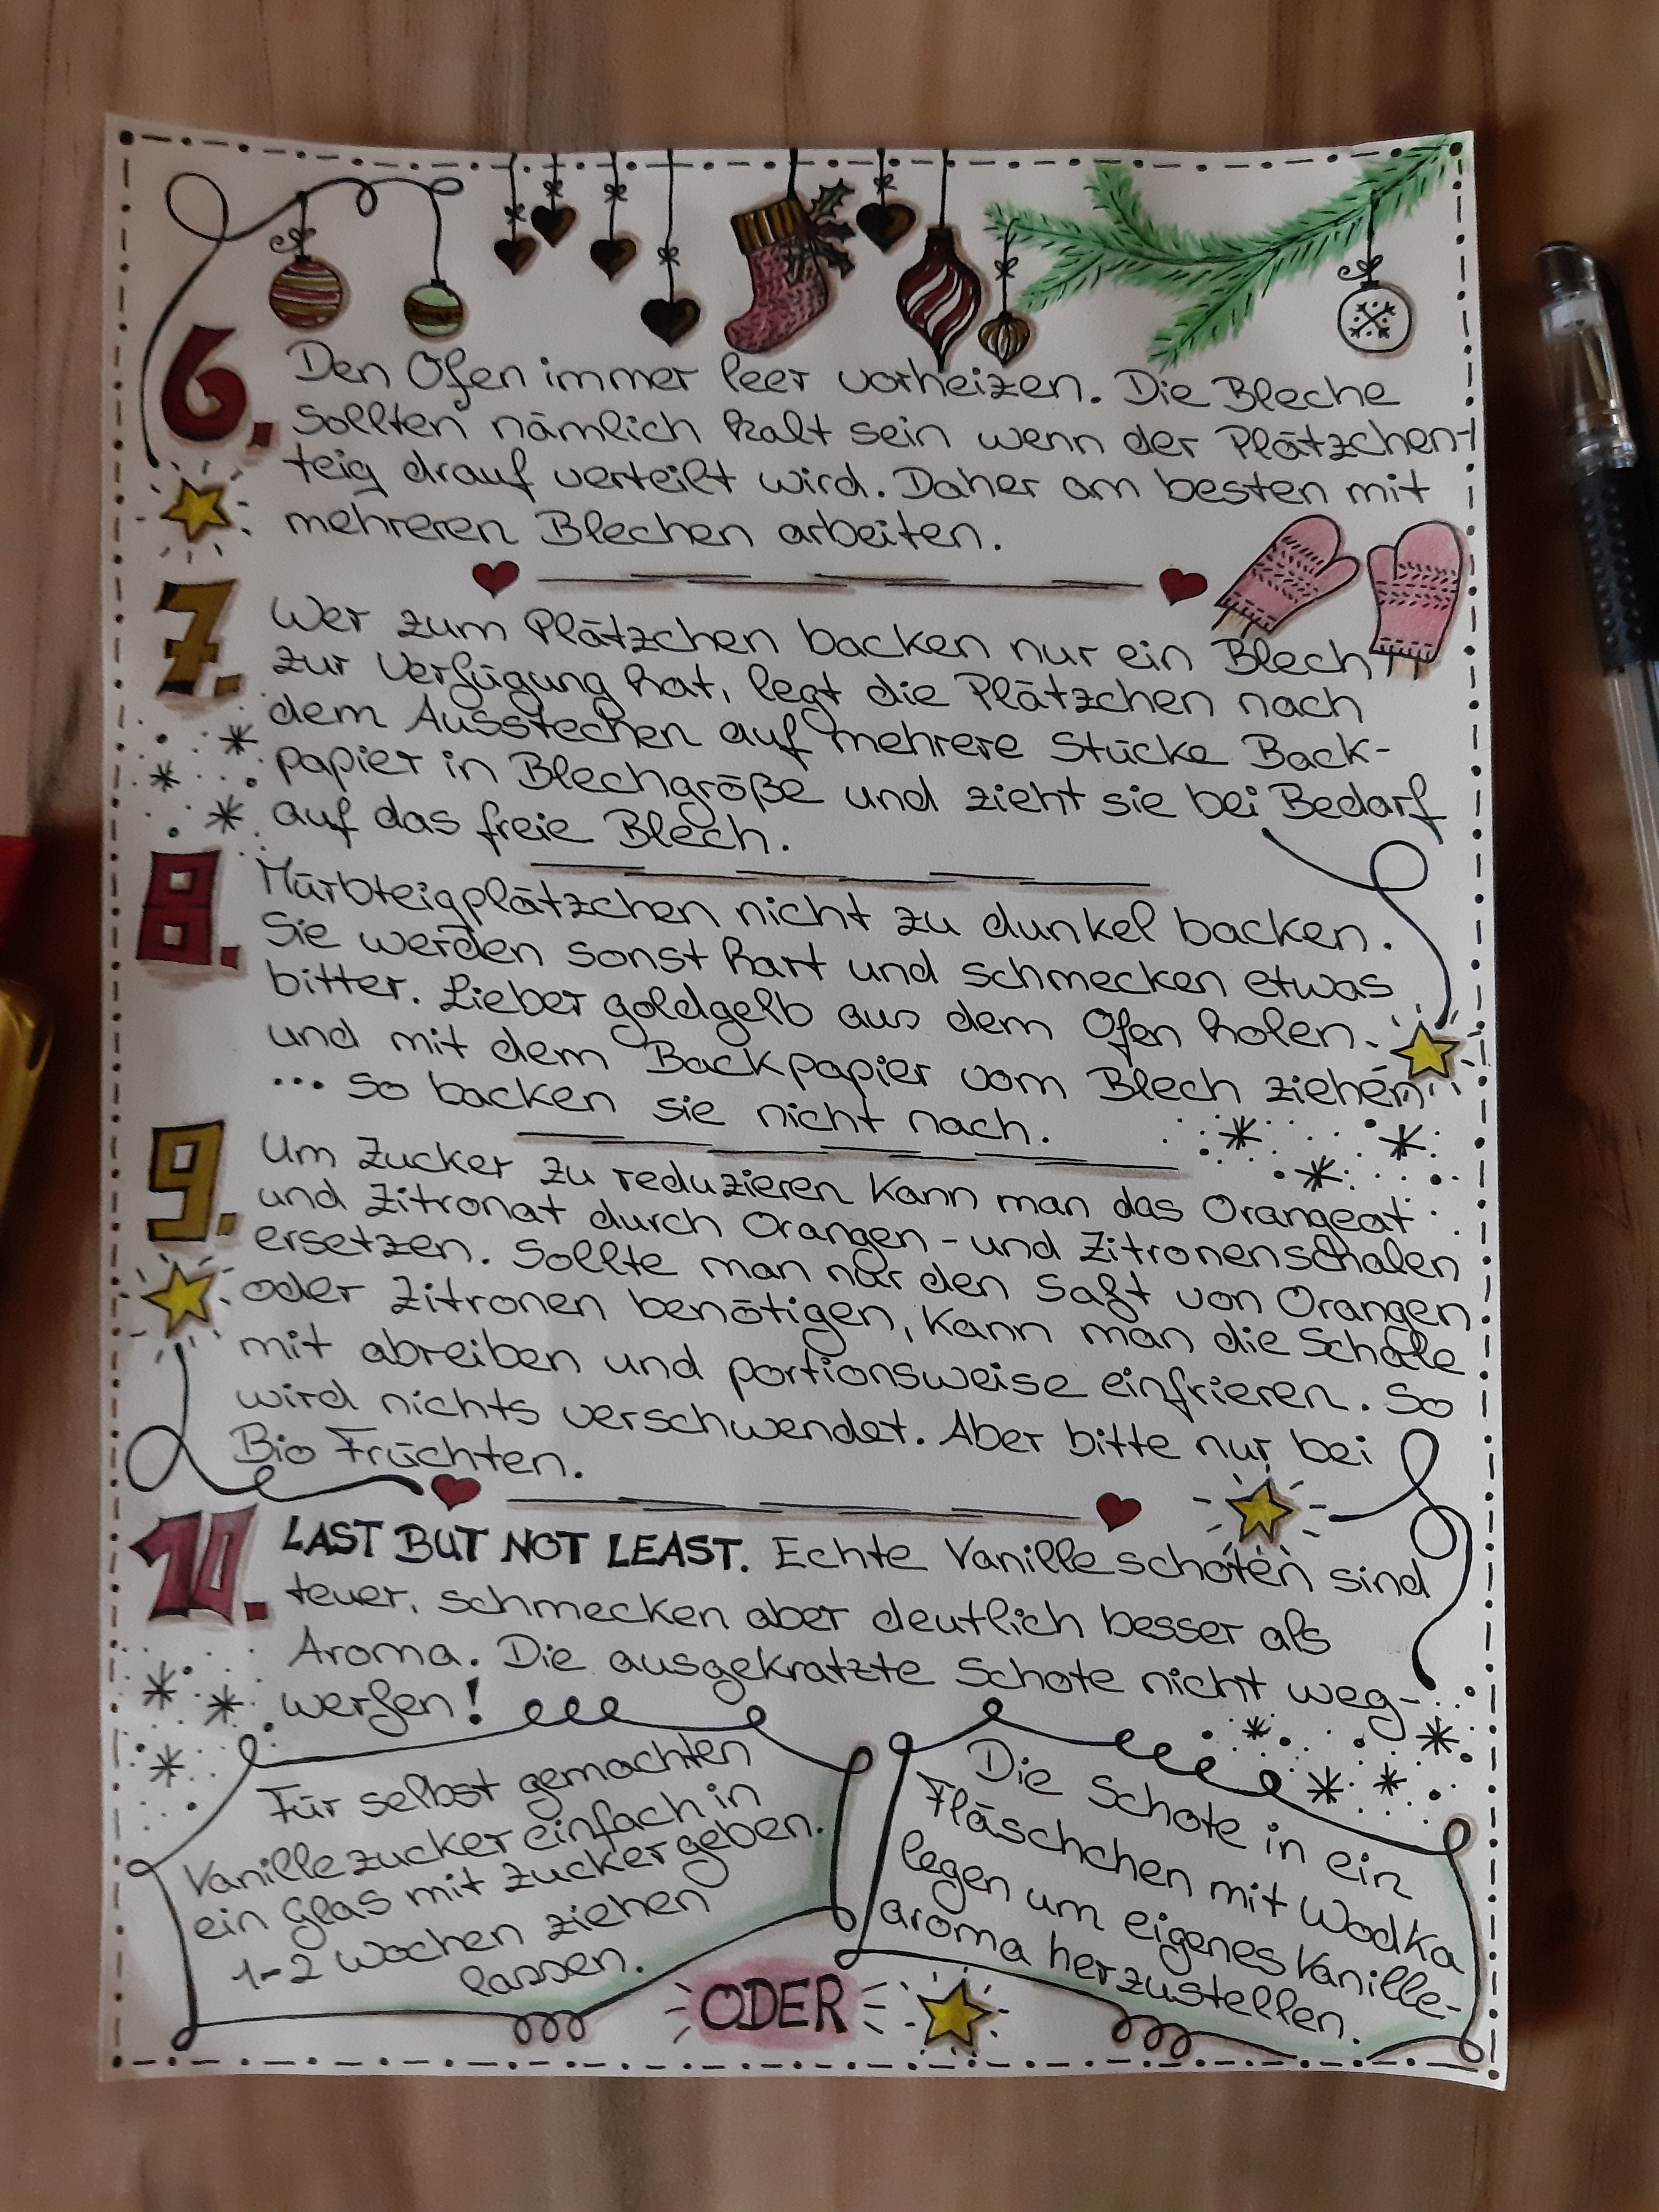 6. Den Ofen immer leer vorheizen. Die Bleche
sollten nämlich kalt sein wenn der Plätzchen-
teig drauf verteilt wird. Daher am besten mit
mehreren Blechen arbeiten.
7. Wer zum Plätzchen backen nur ein Blech
zur Verfügung hat, legt die Plätzchen nach
dem Ausstechen auf mehrere Stücke Back-
papier in Blechgröße und zieht sie bei Bedarf
auf das freie Blech.
8. Mürbteigplätzchen nicht zu dunkel backen.
Sie werden sonst hart und schmecken etwas
bitter. Lieber goldgelb aus dem Ofen holen.
und mit dem Backpapier vom Blech ziehen
... so backen sie nicht nach.
9. Um Zucker zu reduzieren kann man das Orangeat
und Zitronat durch Orangen- und Zitronenschalen
ersetzen. Sollte man nur den Saft von Orangen
oder Zitronen benötigen, kann man die Schale
mit abreiben und portionsweise einfrieren. So
wird nichts verschwendet. Aber bitte nur bei
Bio Früchten.
10. LAST BUT NOT LEAST. Echte Vanilleschoten sind
teuer, schmecken aber deutlich besser als
Aroma. Die ausgekratzte Schote nicht weg-
werfen!
Für selbst gemachten
Vanillezucker einfach in
ein Glas mit Zucker geben.
1-2 Wochen ziehen
lassen.
ODER
Die Schote in ein
Fläschchen mit Wodka
legen um eigenes Vanille-
aroma herzustellen.